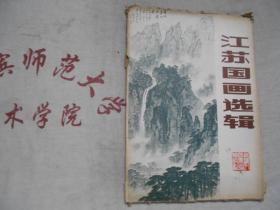 滨师范大学
术学院
江苏国画选辑